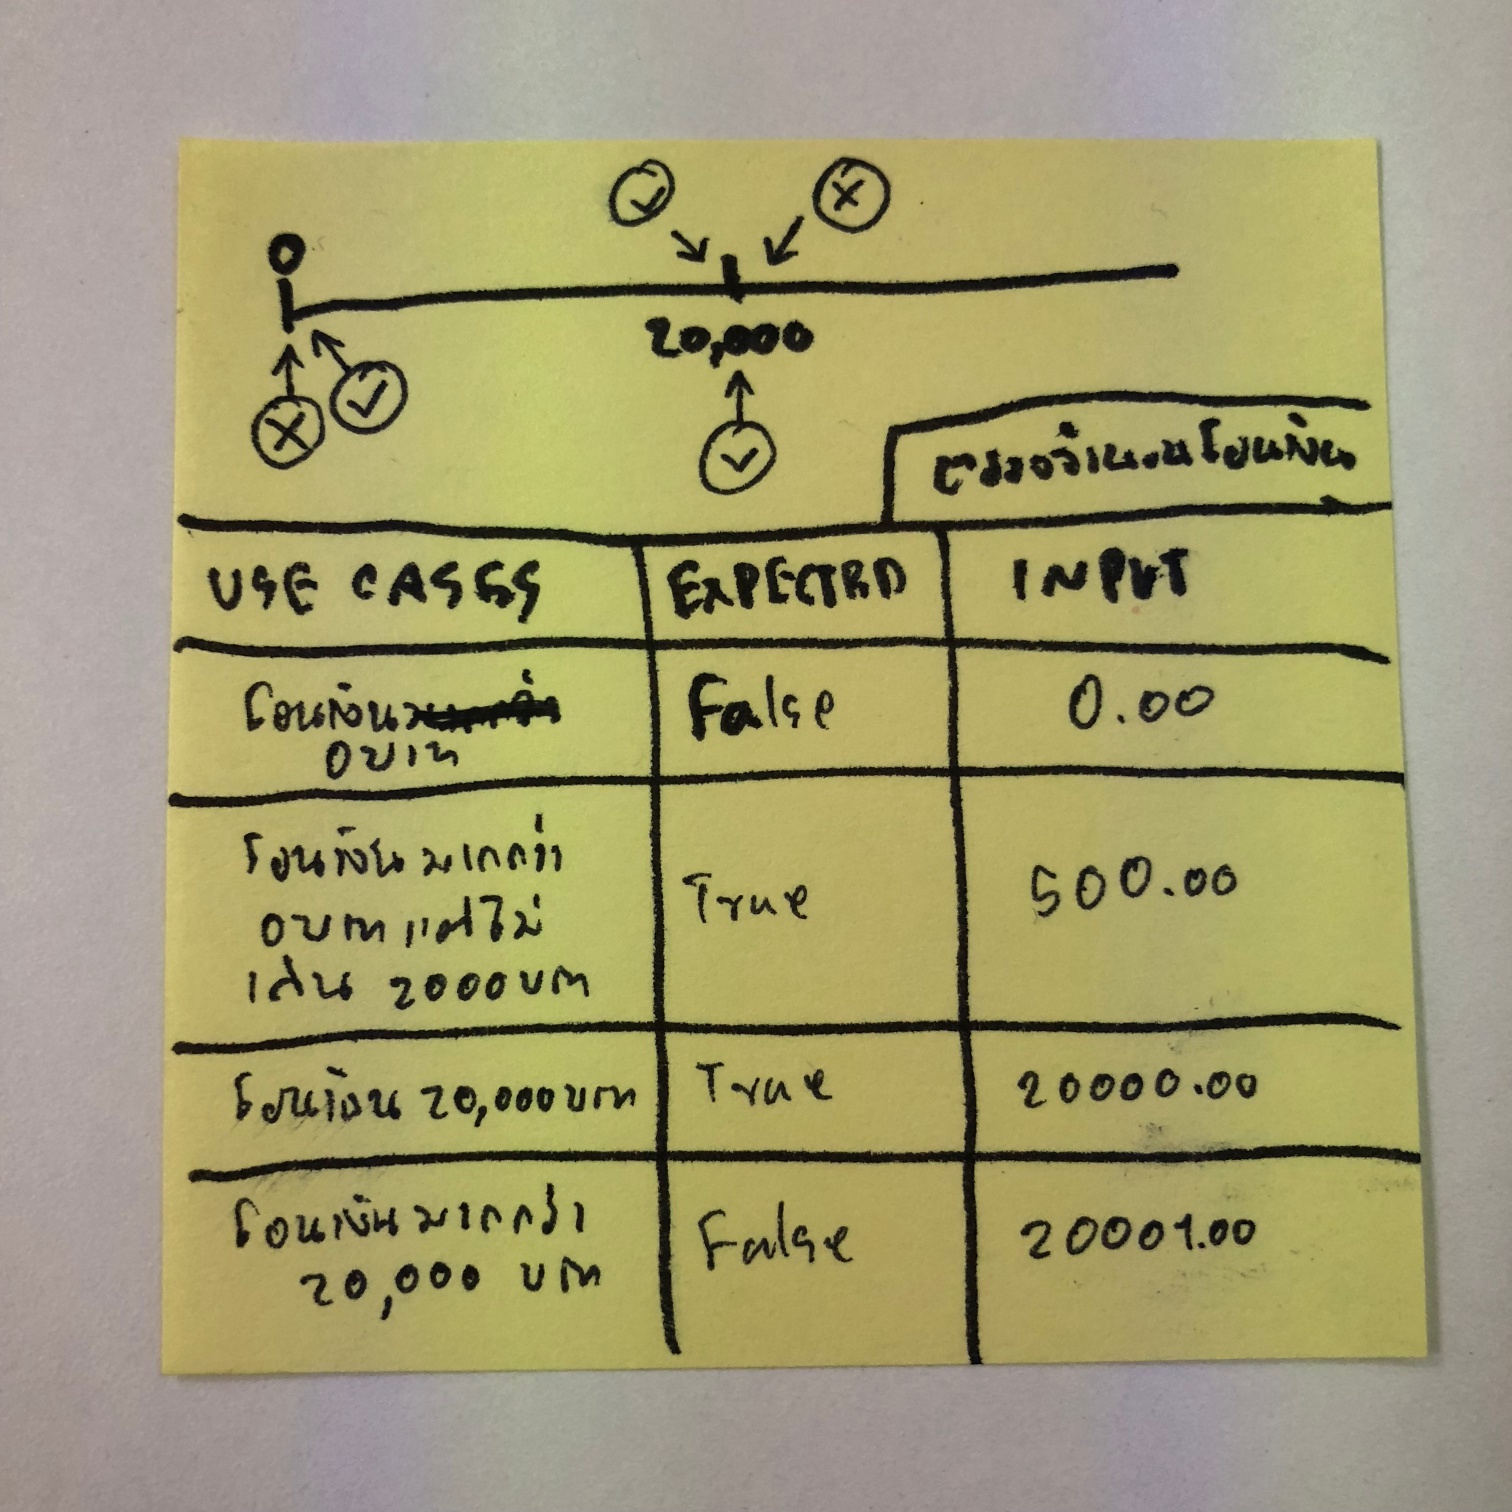 0
20,000
ตรวจจำนวนโอนเงิน
USE CASES EXPECTED INPUT
โอนเงิน
0 บาท
False
0.00
โอนเงินมากกว่า
0 บาท แต่ไม่
เกิน 2000 บาท
True
500.00
โอนเงิน 20,000 บาท
True
20000.00
โอนเงินมากกว่า
20,000 บาท
False
20001.00